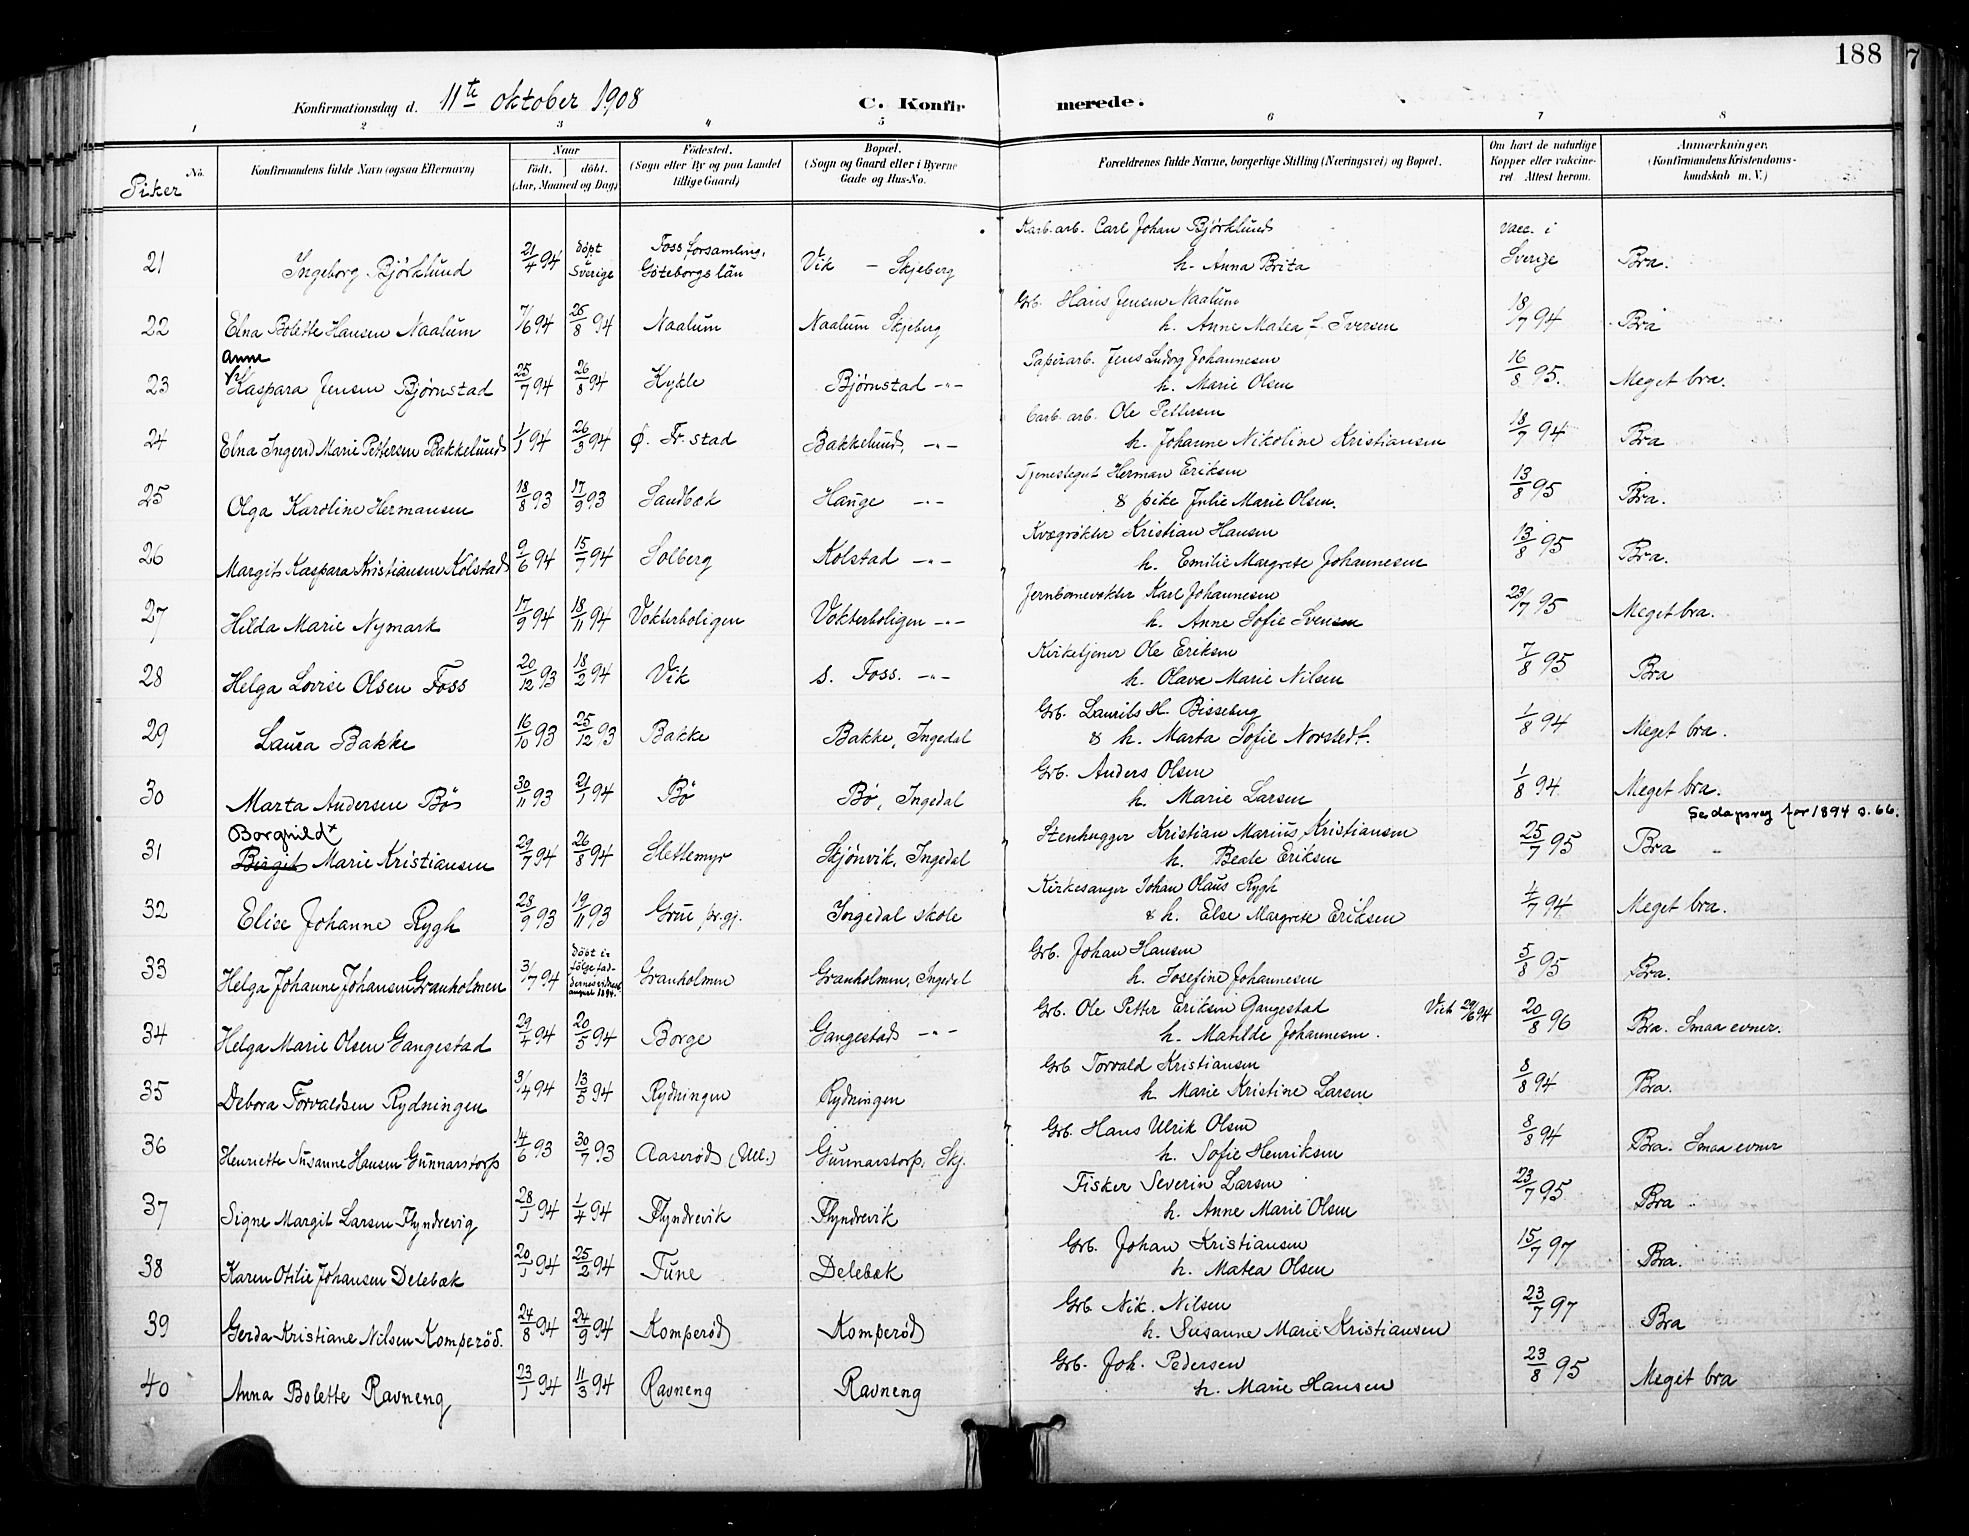 188
7
Konfirmationsdag d. 11te oktober 1908 C. Konfirmerede.
1 2 3 4 5 6 7 8
Piker No. Konfirmandens fulde Navn (ogsaa Efternavn) Naar født. døbt. (Aar, Maaned og Dag) Fødested. (Sogn eller By og paa Landet tillige Gaard) Bopæl. (Sogn og Gaard eller i Byerne Gade og Hus-No. Forældrenes fulde Navne, borgerlige Stilling (Næringsvei) og Bopæl. Om havt de naturlige Kopper eller vakcineret Attest herom. Anmærkninger. (Konfirmandens Kristendomskundskab m. V.)
21 Ingeborg Bjørklund 21/4 94 døpt i Sverige Foss forsamling, Göteborgs län Vik - Skjeberg Karb. arb. Carl Johan Bjørklund h. Anna Brita vacc. i Sverige Bra.
22 Elna Bolette Hansen Naalum 7/6 94 26/8 94 Naalum Naalum Skjeberg Grb. Hans Jensen Naalum h. Anne Matea f. Iversen 18/7 94 Bra
23 Anne Kaspara Jensen Bjørnstad 25/7 94 26/8 94 Kykle Bjørnstad -"- Papirarb. Jens Ludvig Johannesen h. Marie Olsen 16/8 95. Meget bra.
24 Elna Ingerid Marie Pettersen Bakkelund 1/1 94 26/3 94 Ø. Fr.stad Bakkelund, -"- Carb. arb. Ole Pettersen h. Johanne Nikoline Kristiansen 18/7 94 Bra
25 Olga Karoline Hermansen 18/8 93 17/9 93 Sandbæk Hauge -"- Tjenestegut Herman Eriksen & pike Julie Marie Olsen. 13/8 95 Bra.
26 Margit Kaspara Kristiansen Kolstad 9/6 94 15/7 94 Solberg Kolstad -"- Kvægrøkter Kristian Hansen h. Emilie Margrete Johannesen 13/8 95 Bra.
27 Hilda Marie Nymark 17/9 94 18/11 94 Vokterboligen Vokterboligen -"- Jernbanevokter Karl Johannesen h. Anne Sofie Svensen 23/7 95 Meget bra.
28 Helga Lovise Olsen Foss 20/12 93 18/2 94 Vik s. Foss. -"- Kirketjener Ole Eriksen h. Olava Marie Nilsen 7/8 95 Bra
29 Laura Bakke 16/10 93 25/12 93 Bakke Bakke, Ingedal Grb. Laurits H. Bisseberg & h. Marta Sofie Norstedt. 1/8 94 Meget bra.
30 Marta Andersen Bø 30/11 93 21/1 94 Bø Bø, Ingedal Grb. Anders Olsen h. Marie Larsen 1/8 94 Meget bra.
Se dapsreg for 1894 s. 66.
31 Borghild x Birgit Marie Kristiansen 29/7 94 26/8 94 Slettemyr Skjønvik, Ingedal Stenhugger Kristian Marius Kristiansen h. Beate Eriksen 25/7 95 Bra
32 Elise Johanne Rygh 28/9 93 19/11 93 Grue pr.gj. Ingedal skole Kirkesanger Johan Olaus Rygh & h. Else Margrete Eriksen 4/7 94 Meget bra.
33 Helga Johanne Johansen Granholmen 3/7 94 døbt i august 1894. Granholmen Granholmen, Ingedal Grb. Johan Hansen h. Josefine Johannesen 5/8 95 Bra.
34 Helga Marie Olsen Gangestad 29/4 94 20/5 94 Borge Gangestad -"- Grb. Ole Petter Eriksen Gangestad h. Matilde Johannesen. Viet 29/6 94 20/8 96 Bra. Smaa evner.
35 Debora Torvaldsen Rydningen 3/4 94 13/5 94 Rydningen Rydningen Grb Torvald Kristiansen h. Marie Kristine Larsen 8/8 94 Bra.
36 Henriette Susanne Hansen Gunnarstorp 14/6 93 30/7 93 Aaserød (Ull.) Gunnarstorp, Skj. Grb. Hans Ulrik Olsen h. Sofie Henriksen 8/8 94 Bra. Smaa evner
37 Signe Margit Larsen Flyndrevig 28/1 94 1/4 94 Flyndrevik Flyndrevik Fisker Severin Larsen h. Anne Marie Olsen 23/7 95 Bra
38 Karen Otilie Johansen Delebæk 20/1 94 25/2 94 Tune Delebæk Grb. Johan Kristiansen h. Matea Olsen 15/7 97 Bra.
39 Gerda Kristiane Nilsen Komperød. 24/8 94 24/9 94 Komperød Komperød Grb Nik. Nilsen h. Susanne Marie Kristiansen 23/7 97 Bra
40 Anna Bolette Ravneng 23/1 94 11/3 94 Ravneng Ravneng Grb. Joh. Pedersen h. Marie Hansen 23/8 95 Meget bra